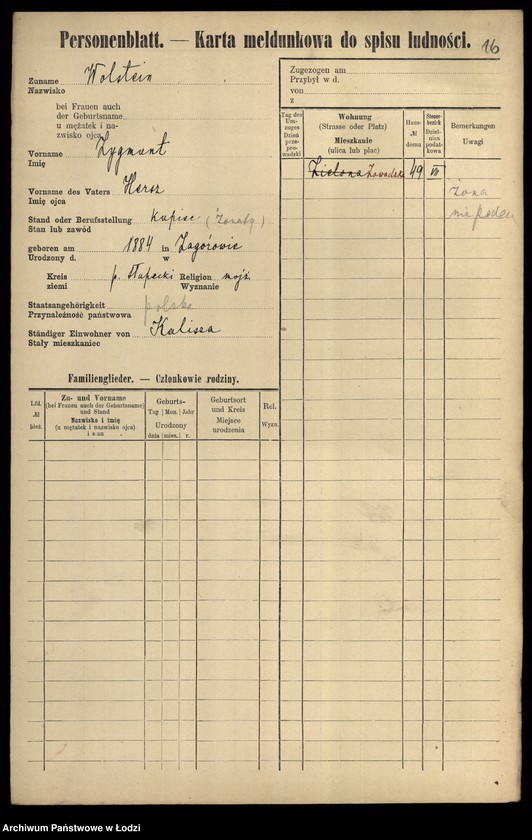 Personenblatt. — Karta meldunkowa do spisu ludności.
16
Zuname Wolstein
Nazwisko
bei Frauen auch
der Geburtsname
u mężatek i na-
zwisko ojca
Vorname Zygmunt
Imię
Vorname des Vaters Hersz
Imię ojca
Stand oder Berufsstellung kupiec (żonaty)
Stan lub zawód
geboren am 1884 in Zagórowie
Urodzony d. w
Kreis p. Słupecki Religion mojż.
ziemi Wyznanie
Staatsangehörigkeit polska
Przynależność państwowa
Ständiger Einwohner von Kalisza
Stały mieszkaniec
Familienglieder. — Członkowie rodziny.
Lfd. № bież.
Zu- und Vorname
(bei Frauen auch der Geburtsname)
und Stand
Nazwisko i imię
(u mężatek i nazwisko ojca)
i stan
Geburts-
Tag Mon. Jahr
Urodzony
dnia mies. r.
Geburtsort
und Kreis
Miejsce
urodzenia
Rel.
Wyzn.
Zugezogen am
Przybył w d.
von
z
Tag des
Um-
zuges
Dzień
prze-
pro-
wadzki
Wohnung
(Strasse oder Platz)
Mieszkanie
(ulica lub plac)
Haus-
№
domu
Steuer-
bezirk
Dziel-
nica
podat-
kowa
Bemerkungen
Uwagi
Zielona 49 VII
żona
nie
Archiwum Państwowe w Łodzi